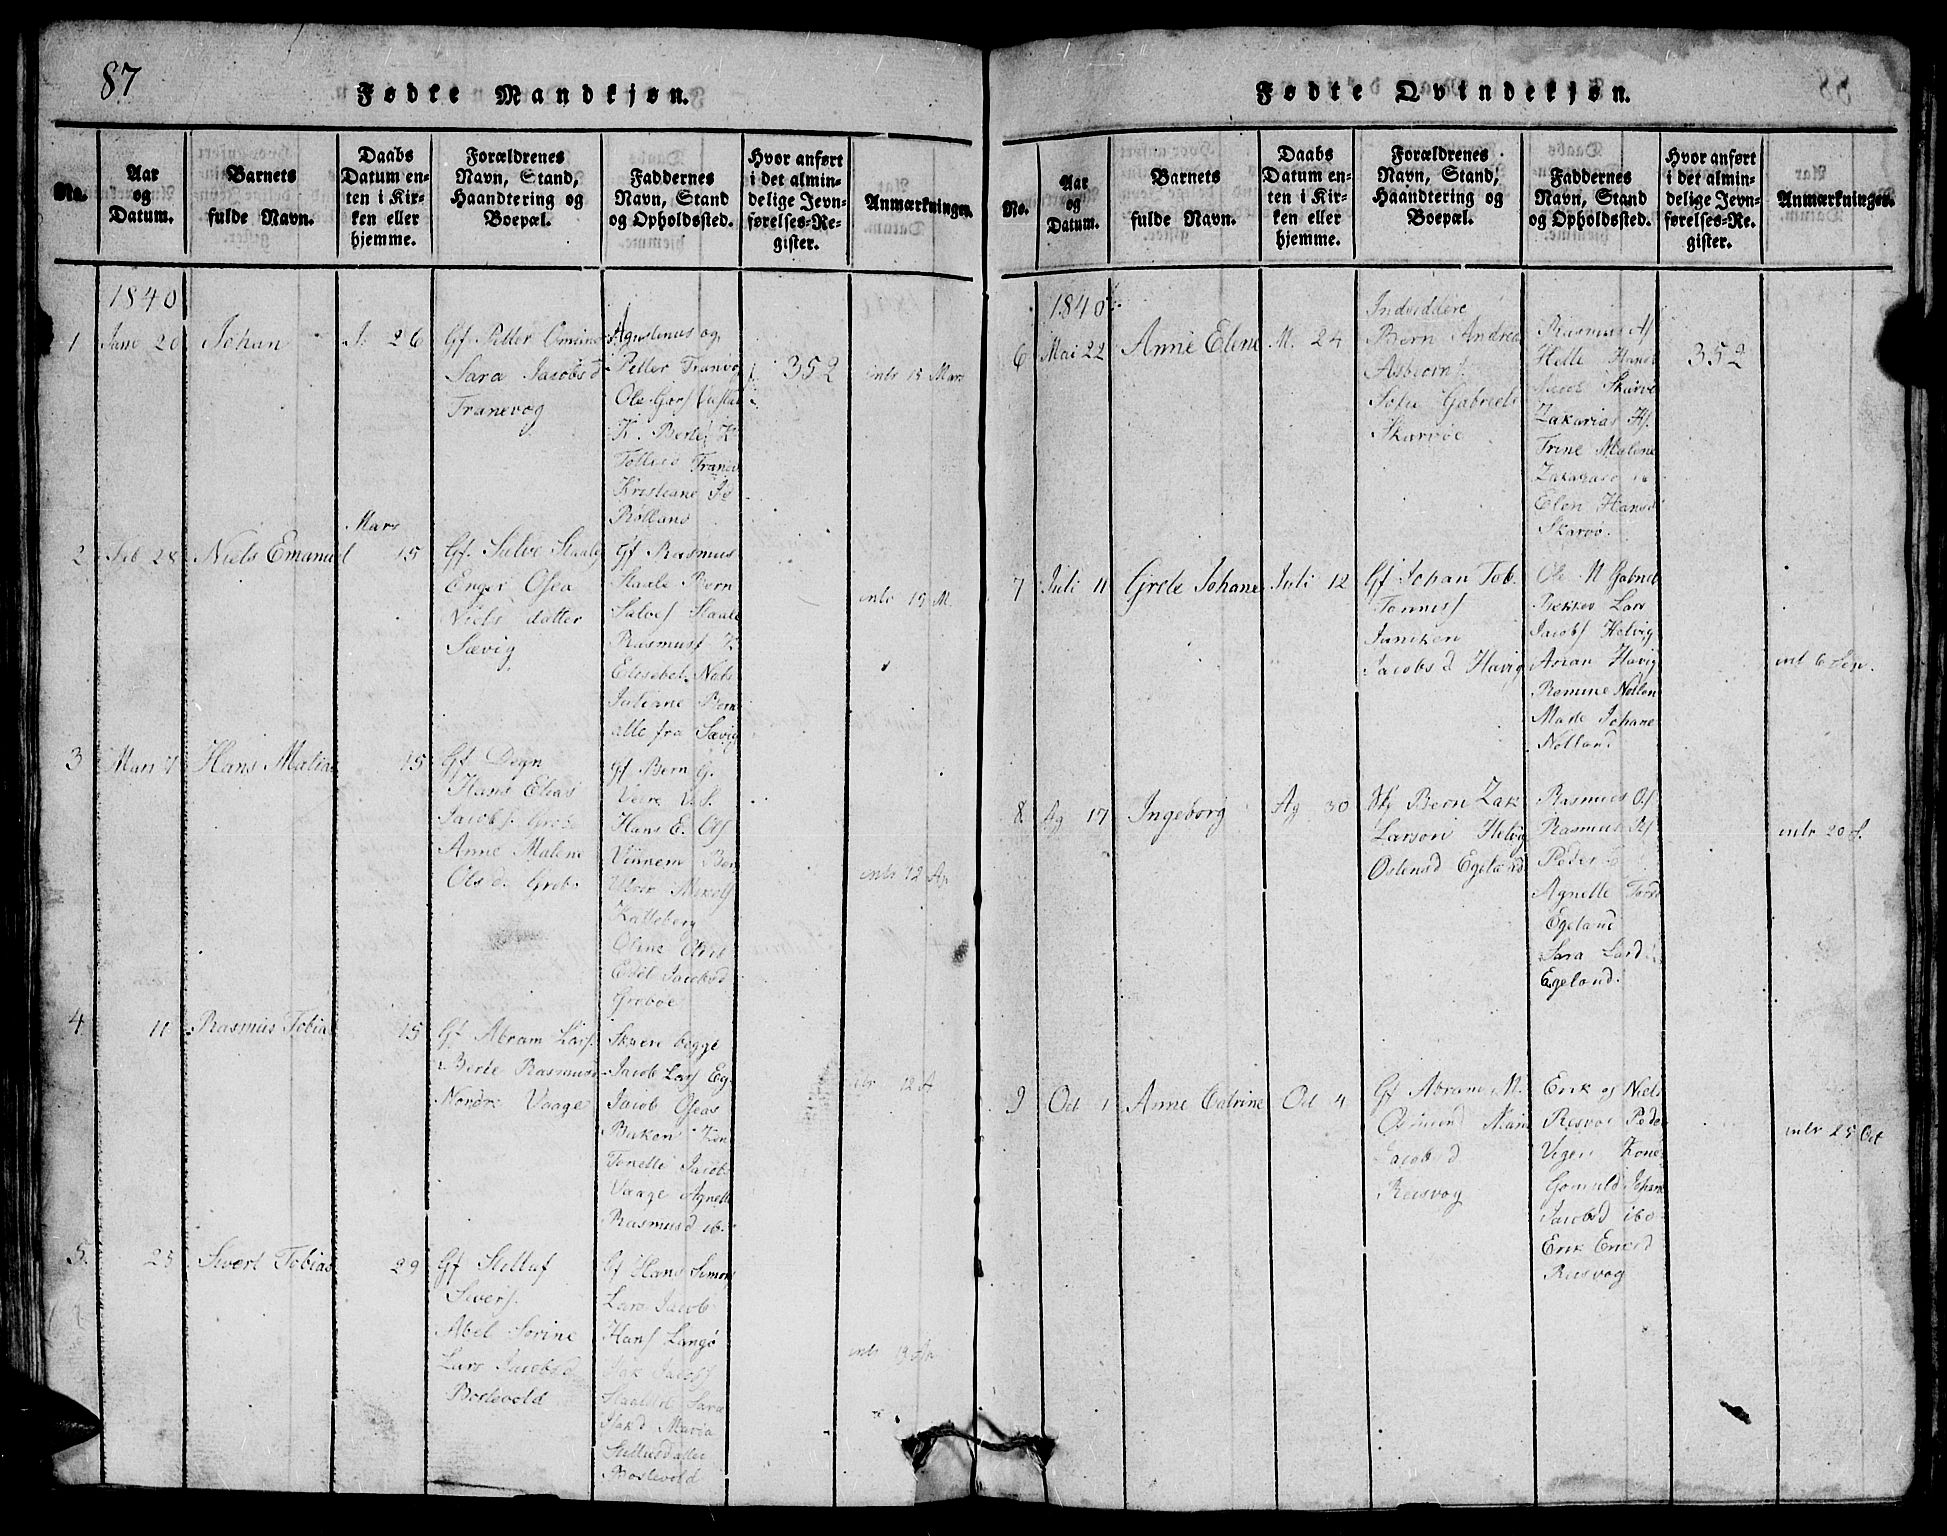 87
Fødte Mandkjøn.
No.
Aar
og
Datum.
Barnets
fulde Navn.
Daabs
Datum en-
ten i Kir-
ken eller
hjemme.
Forældrenes
Navn, Stand,
Haandtering og
Boepæl.
Faddernes
Navn, Stand
og Opholdssted.
Hvor anført
i det almin-
delige Jevn-
førelses-Re-
gister.
Anmærkninger.
1840
1 Janu 20 Johan J. 26
Gf Petter Omund
Sara Jacobsd
Tranevog
Agustenus og
Petter Tranvo
Ole
K. Berte K
Tollies Tranev
Kristiane Jo
Rolland
352
intr 15 Mars
Mars
2 Feb 28 Niels Emanuel 15
Gf. Salve Staale
Enger Osea
Niels datter
Sævig
Gf Rasmus
Staale Bern
Salves Staale
Rasmus K
Elisebet Niels
Juliane Bern
alle fra Sævig
intr 15 M.
3 Mars 7 Hans Matias 15
Gf Degn
Hans Elias
Jacobs. Grobe
Anne Malene
Olsd. Grobo
Gf Bern G.
Veire V.S.
Hans E. Ols
Vinnem Ber
Katteberg
Oline Olsd
Edel Jacobsd
Groboe
intr 12 Ap
4 11 Rasmus Tobias 15
Gf Abram Lars.
Berte Rasmusd
Nordre Vaage
Skuen begge
Jacob Lars Eg
Jacob Oseas
Bakon Kon
Tonette Jacob
Vaage Agnete
Rasmusd ib.
itr 12 A
5. 25 Sivert Tobias 29
Gf Stelluf
Sivers.
Abel Serine
Lars Jacobsd
Bostevold
Gf Hans Simons
Lars Jacob
Hans Langø
Isak Jacobs
Sara
Isakd Maria
Stellusdatter
Bostevold
intr 19 Ap
Fødte Qvindekjøn.
No.
Aar
og
Datum.
Barnets
fulde Navn.
Daabs
Datum en-
ten i Kir-
ken eller
hjemme.
Forældrenes
Navn, Stand,
Haandtering og
Boepæl.
Faddernes
Navn, Stand
og Opholdssted.
Hvor anført
i det almin-
delige Jevn-
førelses-Re-
gister.
Anmærkninger.
1840
6 Mai 22 Anne Elene M. 24
Inderiddere
Bern Andrea
Asbiorns
Sofie Gabriels
Skarvøe
Rasmus As
Helle Hans
Jacob Skarvø
Zakarias Hs.
Trine Malene
Zakariasd ib
Elen Hansd
Skarvø.
352
7 Juli 11 Grete Johane Juli 12
Gf Johan Tob.
Tonnes
Janiken
Jacobsd Havig
Ole N Gabriel
Bekkev Lars
Jacobs Helvig
Arian Havig
Romine Nollen
Marte Johane
Nolland
int 6 Sep.
8. Ag 17 Ingeborg Ag 30
Bern Zak
Larson Helvig
Ostensd Egeland
Rasmus Os
Rasmus Rs
Peder
Agnette Torsd
Egeland
Sara Larsd
Egeland.
intr 20 S.
9 Oct 1 Anne Catrine Oct 4
Gf Abram M.
Osmund Maria
Jacobsd
Reisvog
Erik og Niels
Reisvoe Peder
Vigen Kone
Gonnild Johane
Jacobsd ibo
Erik Ericsd
Reisvog
intr 25 Oct